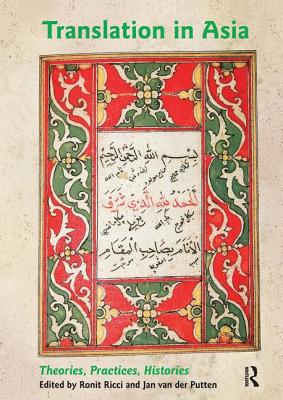 Translation in Asia
بسم الله الرحمن الرحيم
الحمد لله الذي شرف
الأنام بصاحب المقام
Theories, Practices, Histories
Edited by Ronit Ricci and Jan van der Putten
ROUTLEDGE